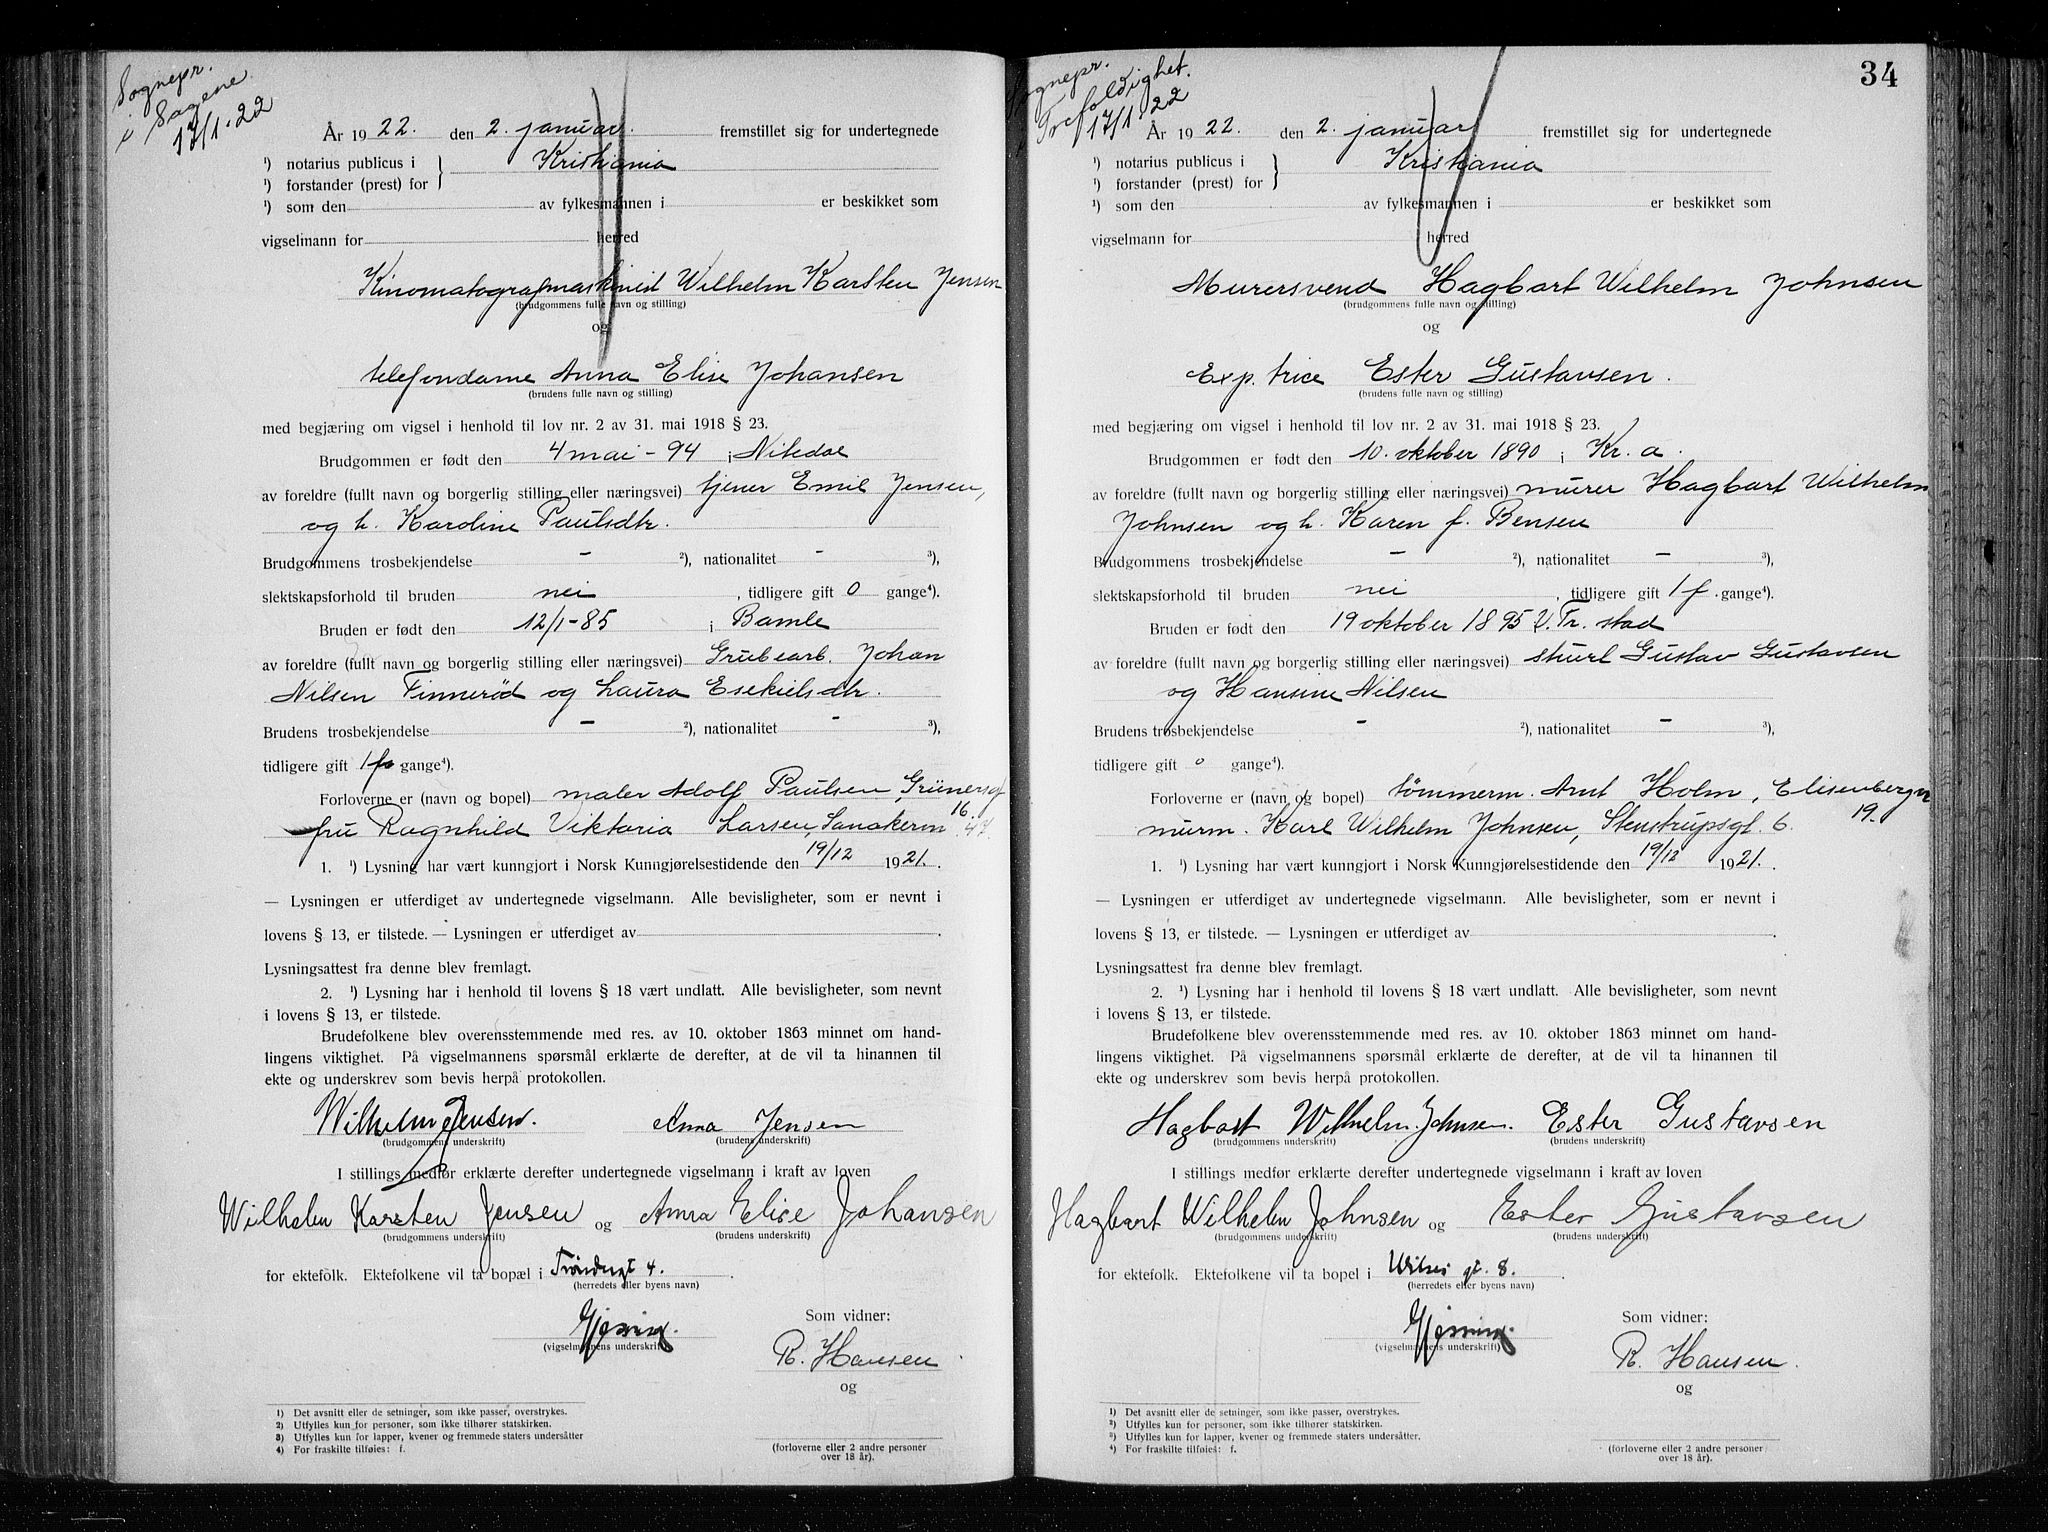 Sognepr.
i Sagene
17/1. 22
År 1922. den 2. januar fremstillet sig for undertegnede
¹) notarius publicus i
¹) forstander (prest) for } Kristiania
¹) som den av fylkesmannen i er beskikket som
vigselmann for herred
Kinomatografmaskinist Wilhelm Karsten Jensen
(brudgommens fulle navn og stilling)
og
telefondame Anna Elise Johansen
(brudens fulle navn og stilling)
med begjæring om vigsel i henhold til lov nr. 2 av 31. mai 1918 § 23.
Brudgommen er født den 4 mai - 94 i Nitedal
av foreldre (fullt navn og borgerlig stilling eller næringsvei) tjener Emil Jensen,
og h. Karoline Paulsdtr.
Brudgommens trosbekjendelse - ²), nationalitet - ³),
slektskapsforhold til bruden nei, tidligere gift 0 gange⁴).
Bruden er født den 12/1-85 i Bamle
av foreldre (fullt navn og borgerlig stilling eller næringsvei) Grubearb. Johan
Nilsen Finnerød og Laura Esekielsdtr.
Brudens trosbekjendelse - ²), nationalitet - ³),
tidligere gift 1 f gange⁴).
Forloverne er (navn og bopel) maler Adolf Paulsen, Grünersgt
16.
fru Ragnhild Viktoria Larsen, Sanakerm 47.
1. ¹) Lysning har vært kunngjort i Norsk Kunngjørelsestidende den 19/12 1921.
— Lysningen er utferdiget av undertegnede vigselmann. Alle bevisligheter, som er nevnt i
lovens § 13, er tilstede. — Lysningen er utferdiget av .
Lysningsattest fra denne blev fremlagt.
2. ¹) Lysning har i henhold til lovens § 18 vært undlatt. Alle bevisligheter, som nevnt
i lovens § 13, er tilstede.
Brudefolkene blev overensstemmende med res. av 10. oktober 1863 minnet om hand-
lingens viktighet. På vigselmannens spørsmål erklærte de derefter, at de vil ta hinannen til
ekte og underskrev som bevis herpå protokollen.
Wilhelm Jensen. Anna Jensen
(brudgommens underskrift) (brudens underskrift)
I stillings medfør erklærte derefter undertegnede vigselmann i kraft av loven
Wilhelm Karsten Jensen og Anna Elise Johansen
(brudgommens underskrift) (brudens underskrift)
for ektefolk. Ektefolkene vil ta bopæl i Trondergt 4.
(herredets eller byens navn)
Gjessing. Som vidner:
(vigselmannens underskrift)
R. Hansen
og
1) Det avsnitt eller de setninger, som ikke passer, overstrykes.
2) Utfylles kun for personer, som ikke tilhører statskirken.
3) Utfylles kun for lapper, kvener og fremmede staters undersåtter
4) For fraskilte tilføies: f.
(forloverne eller 2 andre personer
over 18 år).
34
Sognepr.
i Trefoldighet.
17/1. 22
År 1922. den 2. januar fremstillet sig for undertegnede
¹) notarius publicus i
¹) forstander (prest) for } Kristiania
¹) som den av fylkesmannen i er beskikket som
vigselmann for herred
Murersvend Hagbart Wilhelm Johnsen
(brudgommens fulle navn og stilling)
og
Exp. trice Ester Gustavsen.
(brudens fulle navn og stilling)
med begjæring om vigsel i henhold til lov nr. 2 av 31. mai 1918 § 23.
Brudgommen er født den 10. oktober 1890 i Kr.a.
av foreldre (fullt navn og borgerlig stilling eller næringsvei) murer Hagbart Wilhelm
Johnsen og h. Karen f. Bensen
Brudgommens trosbekjendelse - ²), nationalitet - ³),
slektskapsforhold til bruden nei, tidligere gift 1 f. gange⁴).
Bruden er født den 19 oktober 1895 V. Fr. stad
av foreldre (fullt navn og borgerlig stilling eller næringsvei) sturl Gustav Gustavsen
og Hansine Nilsen
Brudens trosbekjendelse - ²), nationalitet - ³),
tidligere gift 0 gange⁴).
Forloverne er (navn og bopel) tømmerm. Arnt Holm, Elisenbergv
19.
murm. Karl Wilhelm Johnsen, Stenstrupsgt. 6.
1. ¹) Lysning har vært kunngjort i Norsk Kunngjørelsestidende den 19/12 1921.
— Lysningen er utferdiget av undertegnede vigselmann. Alle bevisligheter, som er nevnt i
lovens § 13, er tilstede. — Lysningen er utferdiget av .
Lysningsattest fra denne blev fremlagt.
2. ¹) Lysning har i henhold til lovens § 18 vært undlatt. Alle bevisligheter, som nevnt
i lovens § 13, er tilstede.
Brudefolkene blev overensstemmende med res. av 10. oktober 1863 minnet om hand-
lingens viktighet. På vigselmannens spørsmål erklærte de derefter, at de vil ta hinannen til
ekte og underskrev som bevis herpå protokollen.
Hagbart Wilhelm Johnsen. Ester Gustavsen
(brudgommens underskrift) (brudens underskrift)
I stillings medfør erklærte derefter undertegnede vigselmann i kraft av loven
Hagbart Wilhelm Johnsen og Ester Gustavsen
(brudgommens underskrift) (brudens underskrift)
for ektefolk. Ektefolkene vil ta bopel i Wilses gt. 8.
(herredets eller byens navn)
Gjessing. Som vidner:
(vigselmannens underskrift)
R. Hansen.
og
¹) Det avsnitt eller de setninger, som ikke passer, overstrykes.
²) Utfylles kun for personer, som ikke tilhører statskirken.
³) Utfylles kun for lapper, kvener og fremmede staters undersåtter.
⁴) For fraskilte tilføies: f.
(forloverne eller 2 andre personer
over 18 år).